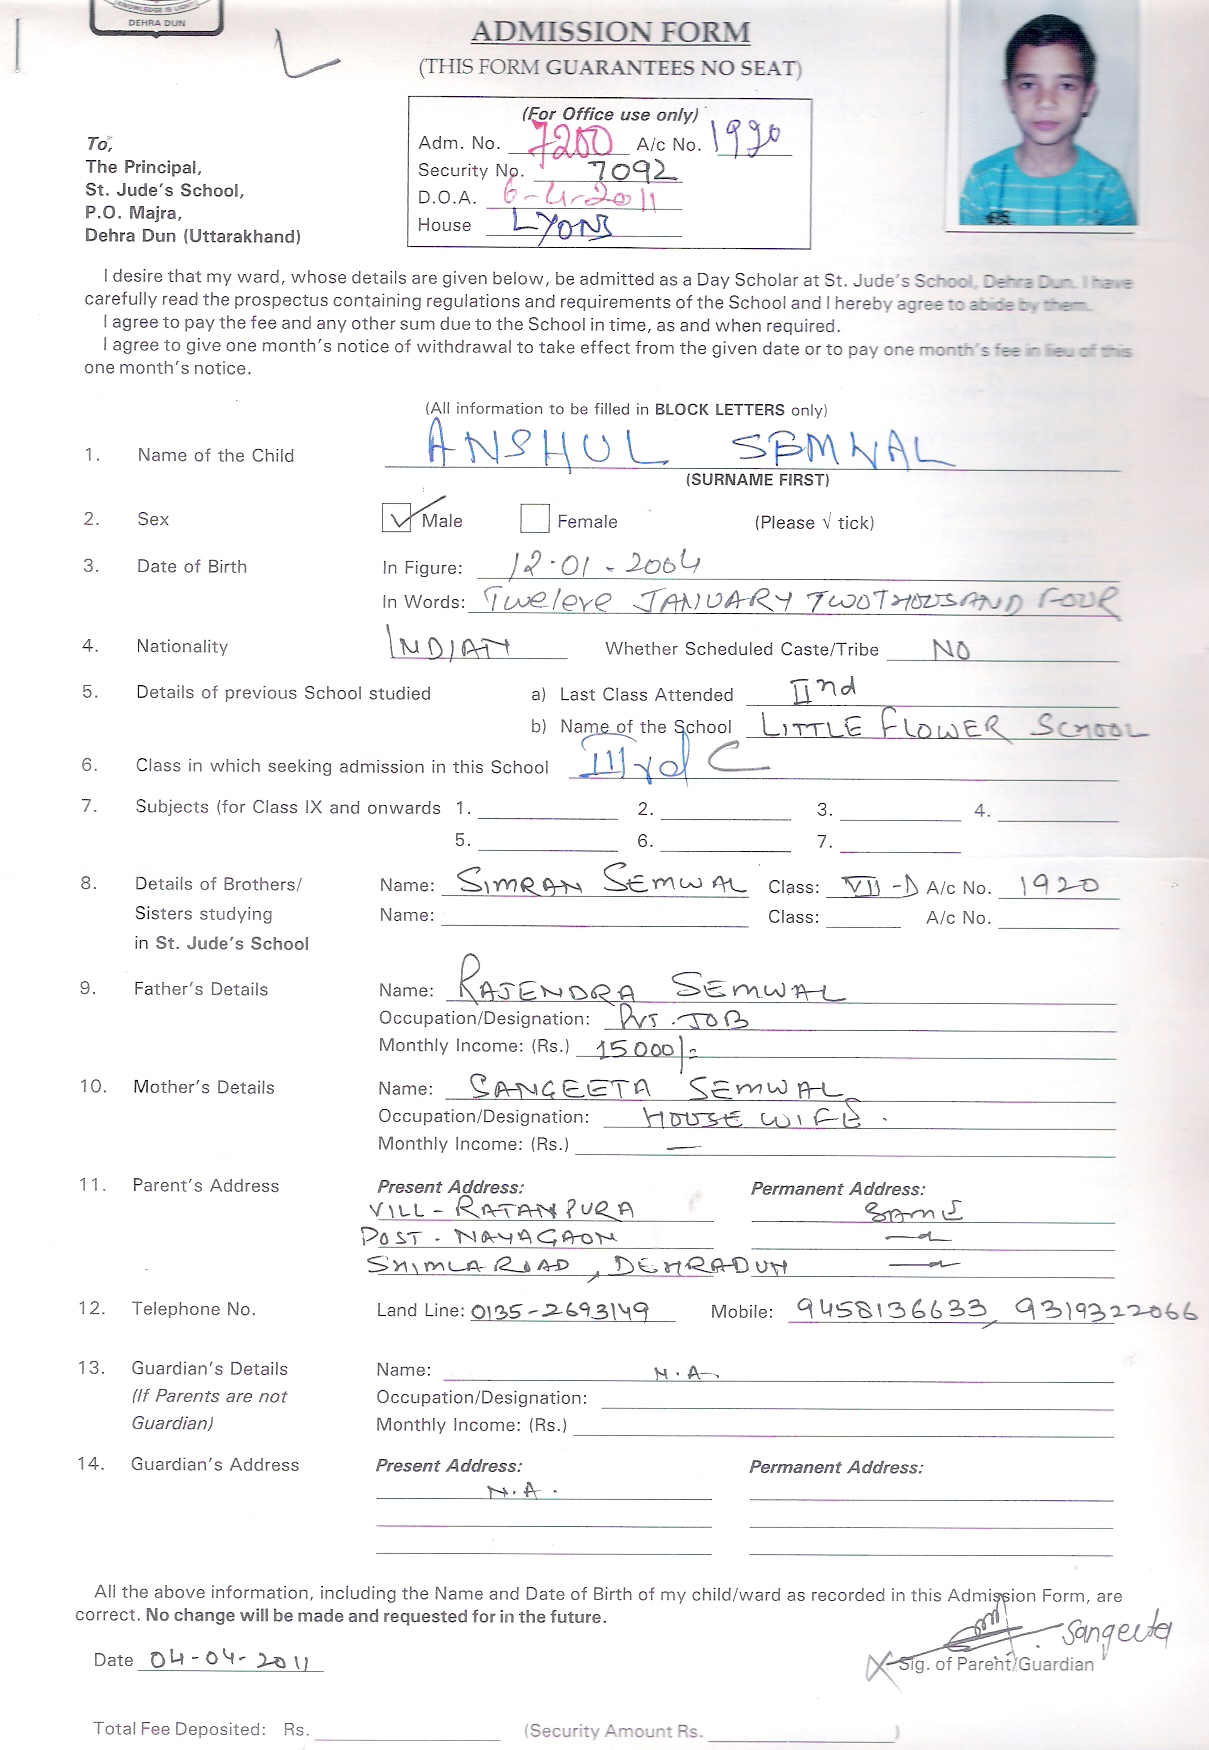 KNOWLEDGE IS LIGHT
DEHRA DUN
ADMISSION FORM
(THIS FORM GUARANTEES NO SEAT)
(For Office use only)
Adm. No. 7200 A/c No. 1920
Security No. 7092
D.O.A. 6-4-2011
House LYONS
To,
The Principal,
St. Jude's School,
P.O. Majra,
Dehra Dun (Uttarakhand)
I desire that my ward, whose details are given below, be admitted as a Day Scholar at St. Jude's School, Dehra Dun. I have
carefully read the prospectus containing regulations and requirements of the School and I hereby agree to abide by them.
I agree to pay the fee and any other sum due to the School in time, as and when required.
I agree to give one month's notice of withdrawal to take effect from the given date or to pay one month's fee in lieu of this
one month's notice.
(All information to be filled in BLOCK LETTERS only)
1. Name of the Child ANSHUL SEMWAL
(SURNAME FIRST)
2. Sex Male Female (Please √ tick)
3. Date of Birth In Figure: 12.01.2004
In Words: Tweleve JANUARY TWO THOUSAND FOUR
4. Nationality INDIAN Whether Scheduled Caste/Tribe NO
5. Details of previous School studied a) Last Class Attended IInd
b) Name of the School LITTLE FLOWER SCHOOL
6. Class in which seeking admission in this School IIIrd C
7. Subjects (for Class IX and onwards 1. 2. 3. 4.
5. 6. 7.
8. Details of Brothers/ Name: SIMRAN SEMWAL Class: VII-D A/c No. 1920
Sisters studying Name: Class: A/c No.
in St. Jude's School
9. Father's Details Name: RAJENDRA SEMWAL
Occupation/Designation: PVT. JOB
Monthly Income: (Rs.) 15000/-
10. Mother's Details Name: SANGEETA SEMWAL
Occupation/Designation: HOUSE WIFE.
Monthly Income: (Rs.) —
11. Parent's Address Present Address: Permanent Address:
VILL - RATANPURA SAME
POST. NAYAGAON
SHIMLA ROAD, DEHRADUN
12. Telephone No. Land Line: 0135-2693149 Mobile: 9458136633, 9319322066
13. Guardian's Details Name: N.A.
(If Parents are not Occupation/Designation:
Guardian) Monthly Income: (Rs.)
14. Guardian's Address Present Address: Permanent Address:
N.A.
All the above information, including the Name and Date of Birth of my child/ward as recorded in this Admission Form, are
correct. No change will be made and requested for in the future.
Sangeeta
Date 04-04-2011 Sig. of Parent/Guardian
Total Fee Deposited: Rs. (Security Amount Rs. )